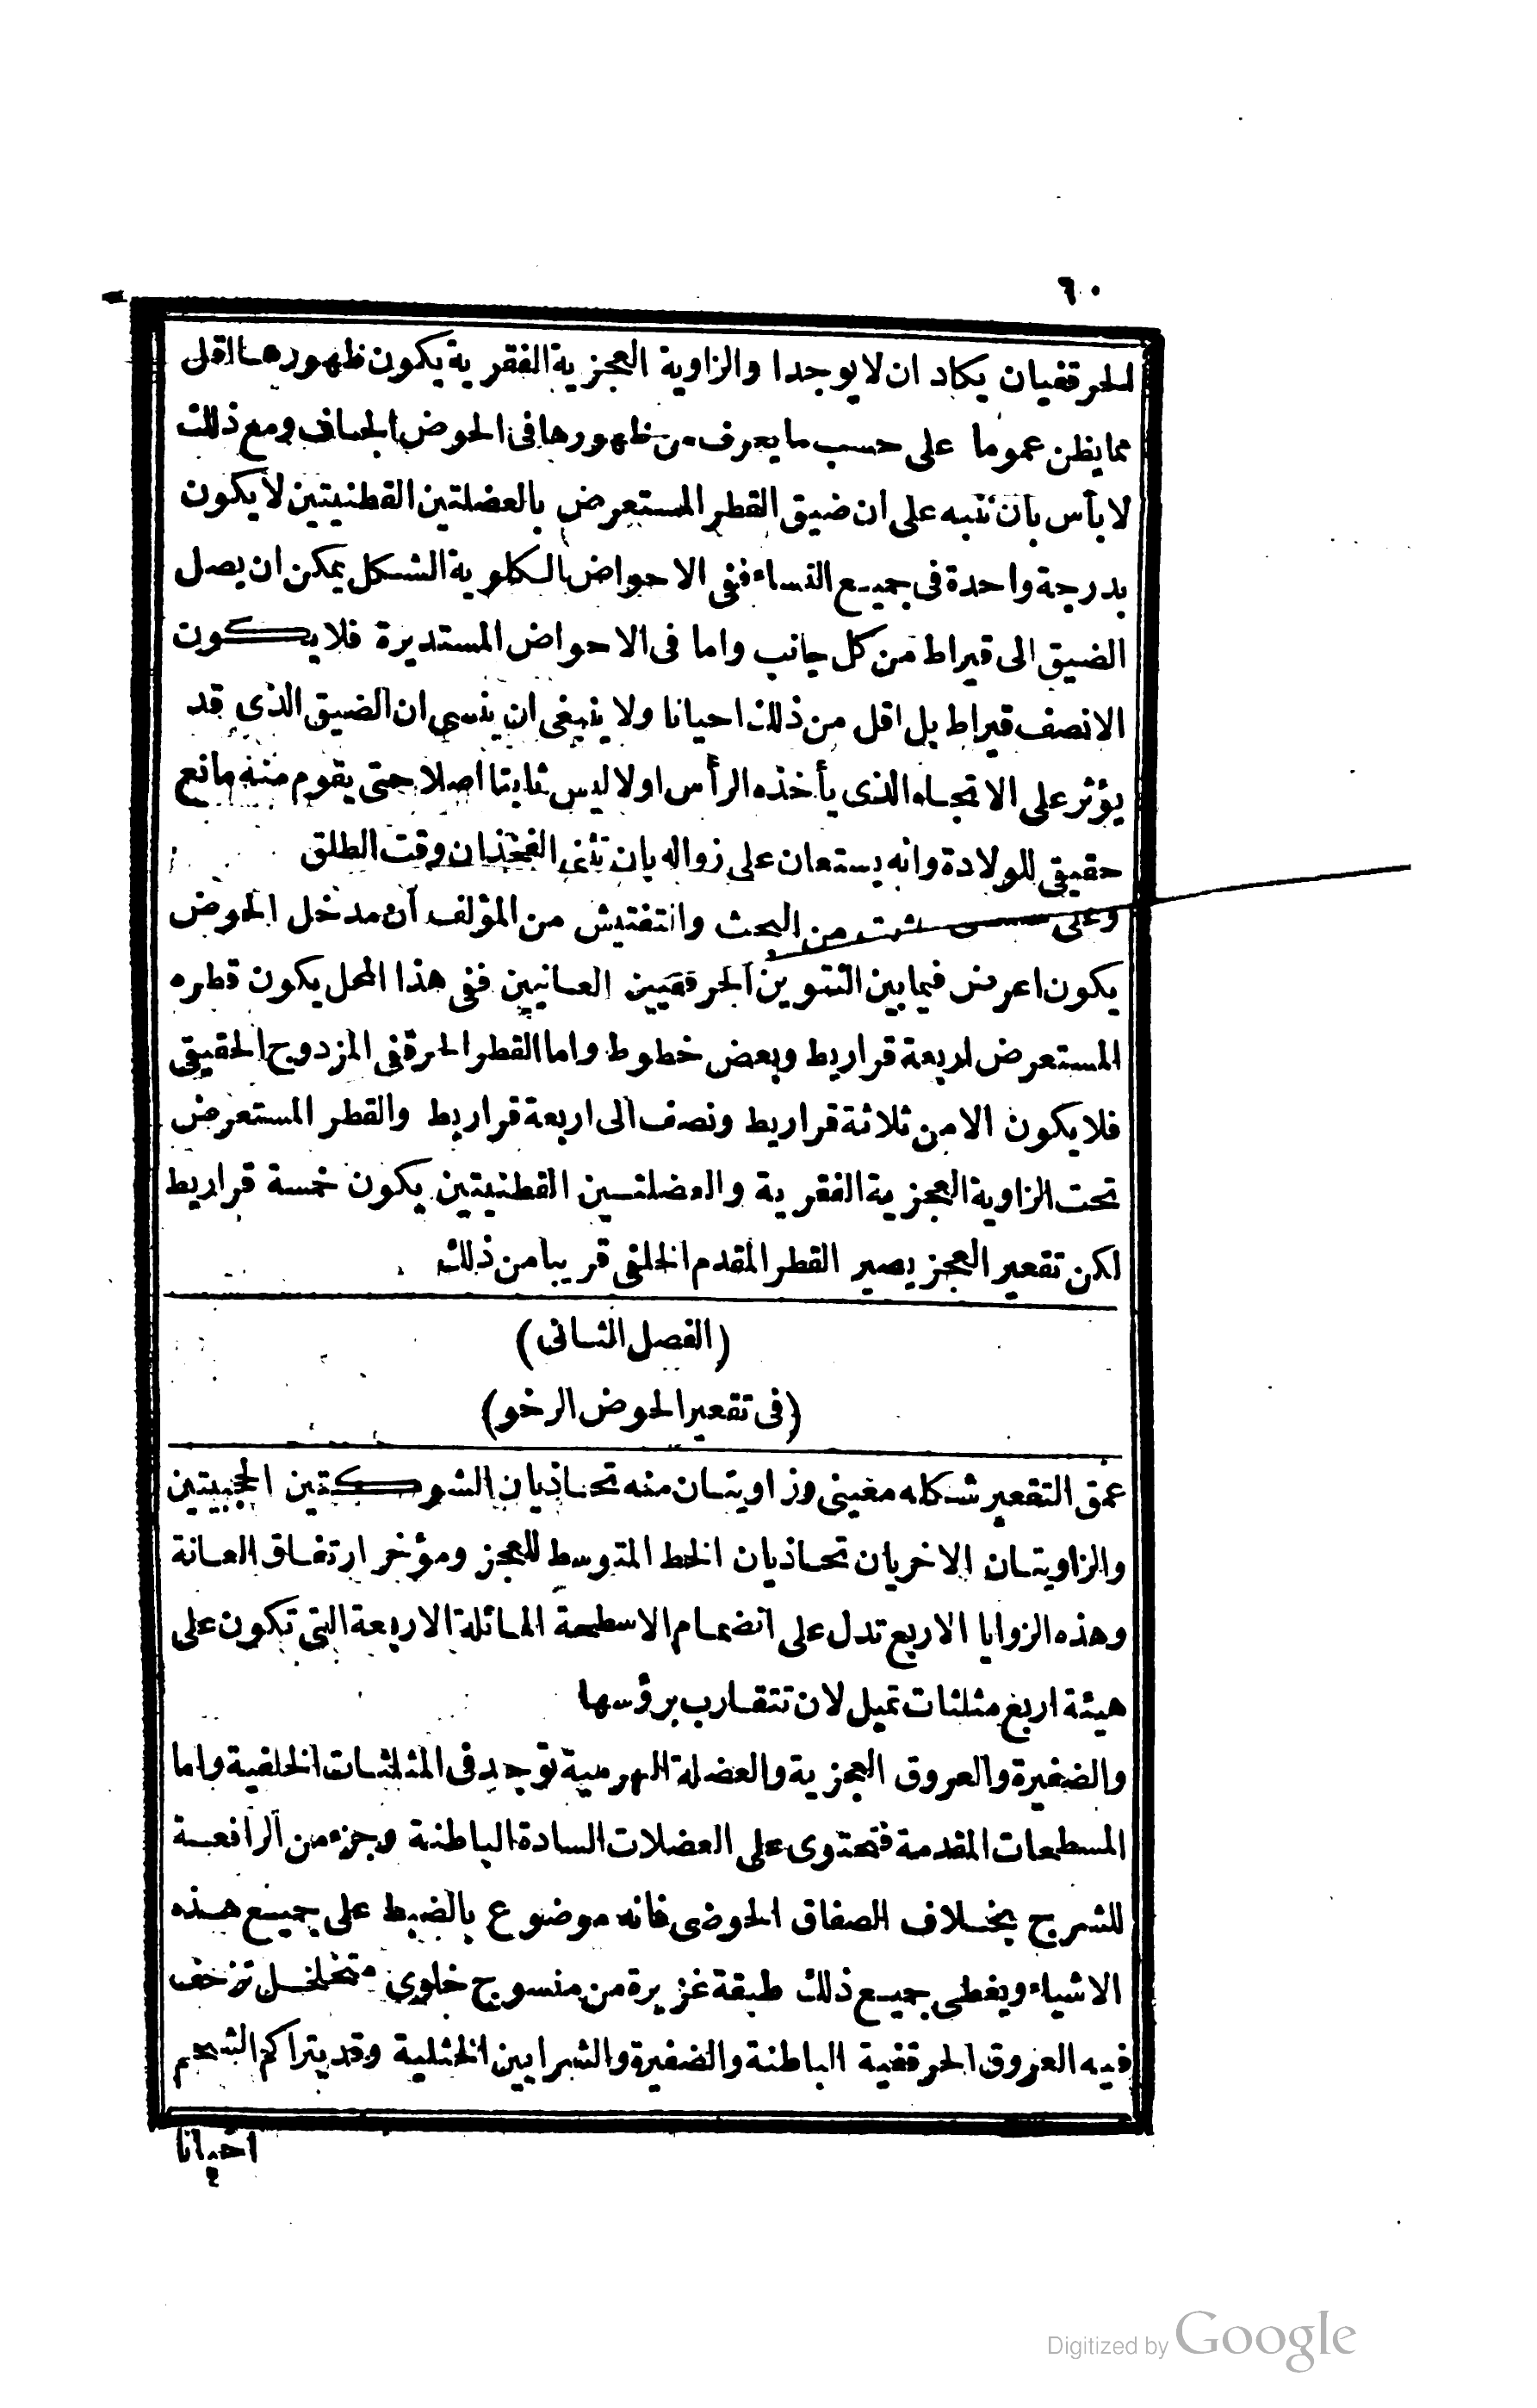 ٦٠
الحرقفيان يكاد ان لا يوجدا والزاوية العجزية الفقرية يكون ظهورها اقل
مما يظن عموما على حسب ما يعرف من ظهورها فى الحوض الجاف ومع ذلك
لا بأس بأن ننبه على ان ضيق القطر المستعرض بالعضلتين القطنيتين لا يكون
بدرجة واحدة فى جميع النساء ففى الاحواض الكلوية الشكل يمكن ان يصل
الضيق الى قيراط من كل جانب واما فى الاحواض المستديرة فلا يكون
الا نصف قيراط بل اقل من ذلك احيانا ولا ينبغى ان ينسى ان الضيق الذى قد
يؤثر على الاتجاه الذى يأخذه الرأس اولا ليس ثابتا اصلا حتى يقوم منه مانع
حقيقى للولادة وانه يستعان على زواله بان تثنى الفخذان وقت الطلق
وعلى ثبت من البحث والتفتيش من المؤلف أن مدخل الحوض
يكون اعرض فيما بين النتوين الحرقفيين العانيين ففى هذا المحل يكون قطره
المستعرض اربعة قراريط وبعض خطوط واما القطر الحرقفى المزدوج الحقيقى
فلا يكون الا من ثلاثة قراريط ونصف الى اربعة قراريط والقطر المستعرض
تحت الزاوية العجزية الفقرية والعضلتين القطنيتين يكون خمسة قراريط
لكن تقعير العجز يصير القطر المقدم الخلفى قريبا من ذلك
(الفصل الثانى)
(فى تقعير الحوض الرخو)
عمق التقعير شكله معينى وزاويتان منه تحاذيان الشوكتين الجبيتين
والزاويتان الاخريان تحاذيان الخط المتوسط للعجز ومؤخر ارتفاق العانة
وهذه الزوايا الاربع تدل على انضمام الاسطحة المائلة الاربعة التى تكون على
هيئة اربع مثلثات تميل لان تتقارب برؤسها
والضفيرة والعروق العجزية والعضلة الهرمية توجد فى المثلثات الخلفية واما
المسطحات المقدمة فتحتوى على العضلات السادة الباطنة وجزء من الرافعة
للشرج بخلاف الصفاق الحوضى فانه موضوع بالضبط على جميع هذه
الاشياء ويغطى جميع ذلك طبقة غزيرة من منسوج خلوى متخلخل تزحف
فيه العروق الحرقفية الباطنة والضفيرة والشرايين الخثلية وقد يتراكم الشحم
احيانا
Digitized by Google